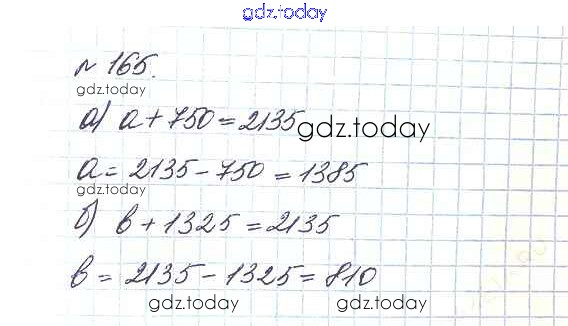 gdz.today
№ 165.
gdz.today
а) a + 750 = 2135 gdz.today
a = 2135 - 750 = 1385
gdz.today
б) b + 1325 = 2135
b = 2135 - 1325 = 810
gdz.today gdz.today